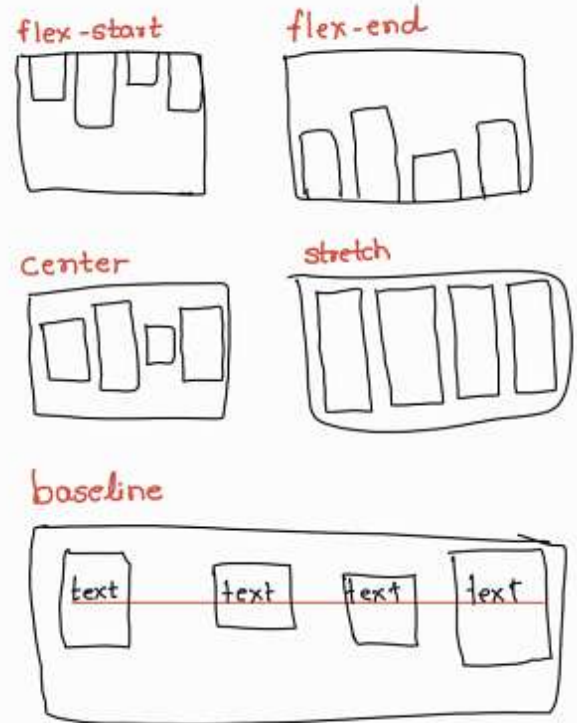 flex-start
flex-end
center
stretch
baseline
text
text
text
text